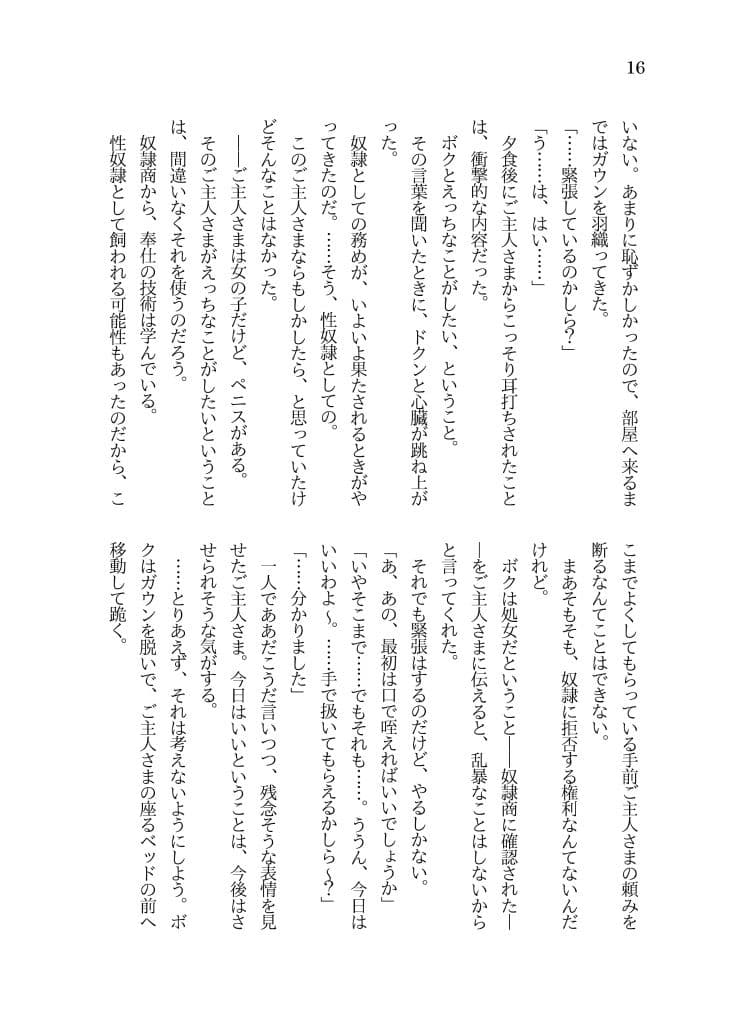 16
いない。あまりに恥ずかしかったので、部屋へ来るま
ではガウンを羽織ってきた。
「……緊張しているのかしら？」
「う……は、はい……」
夕食後にご主人さまからこっそり耳打ちされたこと
は、衝撃的な内容だった。
ボクとえっちなことがしたい、ということ。
その言葉を聞いたときに、ドクンと心臓が跳ね上が
った。
奴隷としての務めが、いよいよ果たされるときがや
ってきたのだ。……そう、性奴隷としての。
このご主人さまならもしかしたら、と思っていたけ
どそんなことはなかった。
――ご主人さまは女の子だけど、ペニスがある。
そのご主人さまがえっちなことがしたいということ
は、間違いなくそれを使うのだろう。
奴隷商から、奉仕の技術は学んでいる。
性奴隷として飼われる可能性もあったのだから、こ
こまでよくしてもらっている手前ご主人さまの頼みを
断るなんてことはできない。
まあそもそも、奴隷に拒否する権利なんてないんだ
けれど。
ボクは処女だということ――奴隷商に確認された―
―をご主人さまに伝えると、乱暴なことはしないから
と言ってくれた。
それでも緊張はするのだけど、やるしかない。
「あ、あの、最初は口で咥えればいいでしょうか」
「いやそこまで……でもそれも……。ううん、今日は
いいわよ〜。……手で扱いてもらえるかしら〜？」
「……分かりました」
一人でああだこうだ言いつつ、残念そうな表情を見
せたご主人さま。今日はいいということは、今後はさ
せられそうな気がする。
……とりあえず、それは考えないようにしよう。ボ
クはガウンを脱いで、ご主人さまの座るベッドの前へ
移動して跪く。